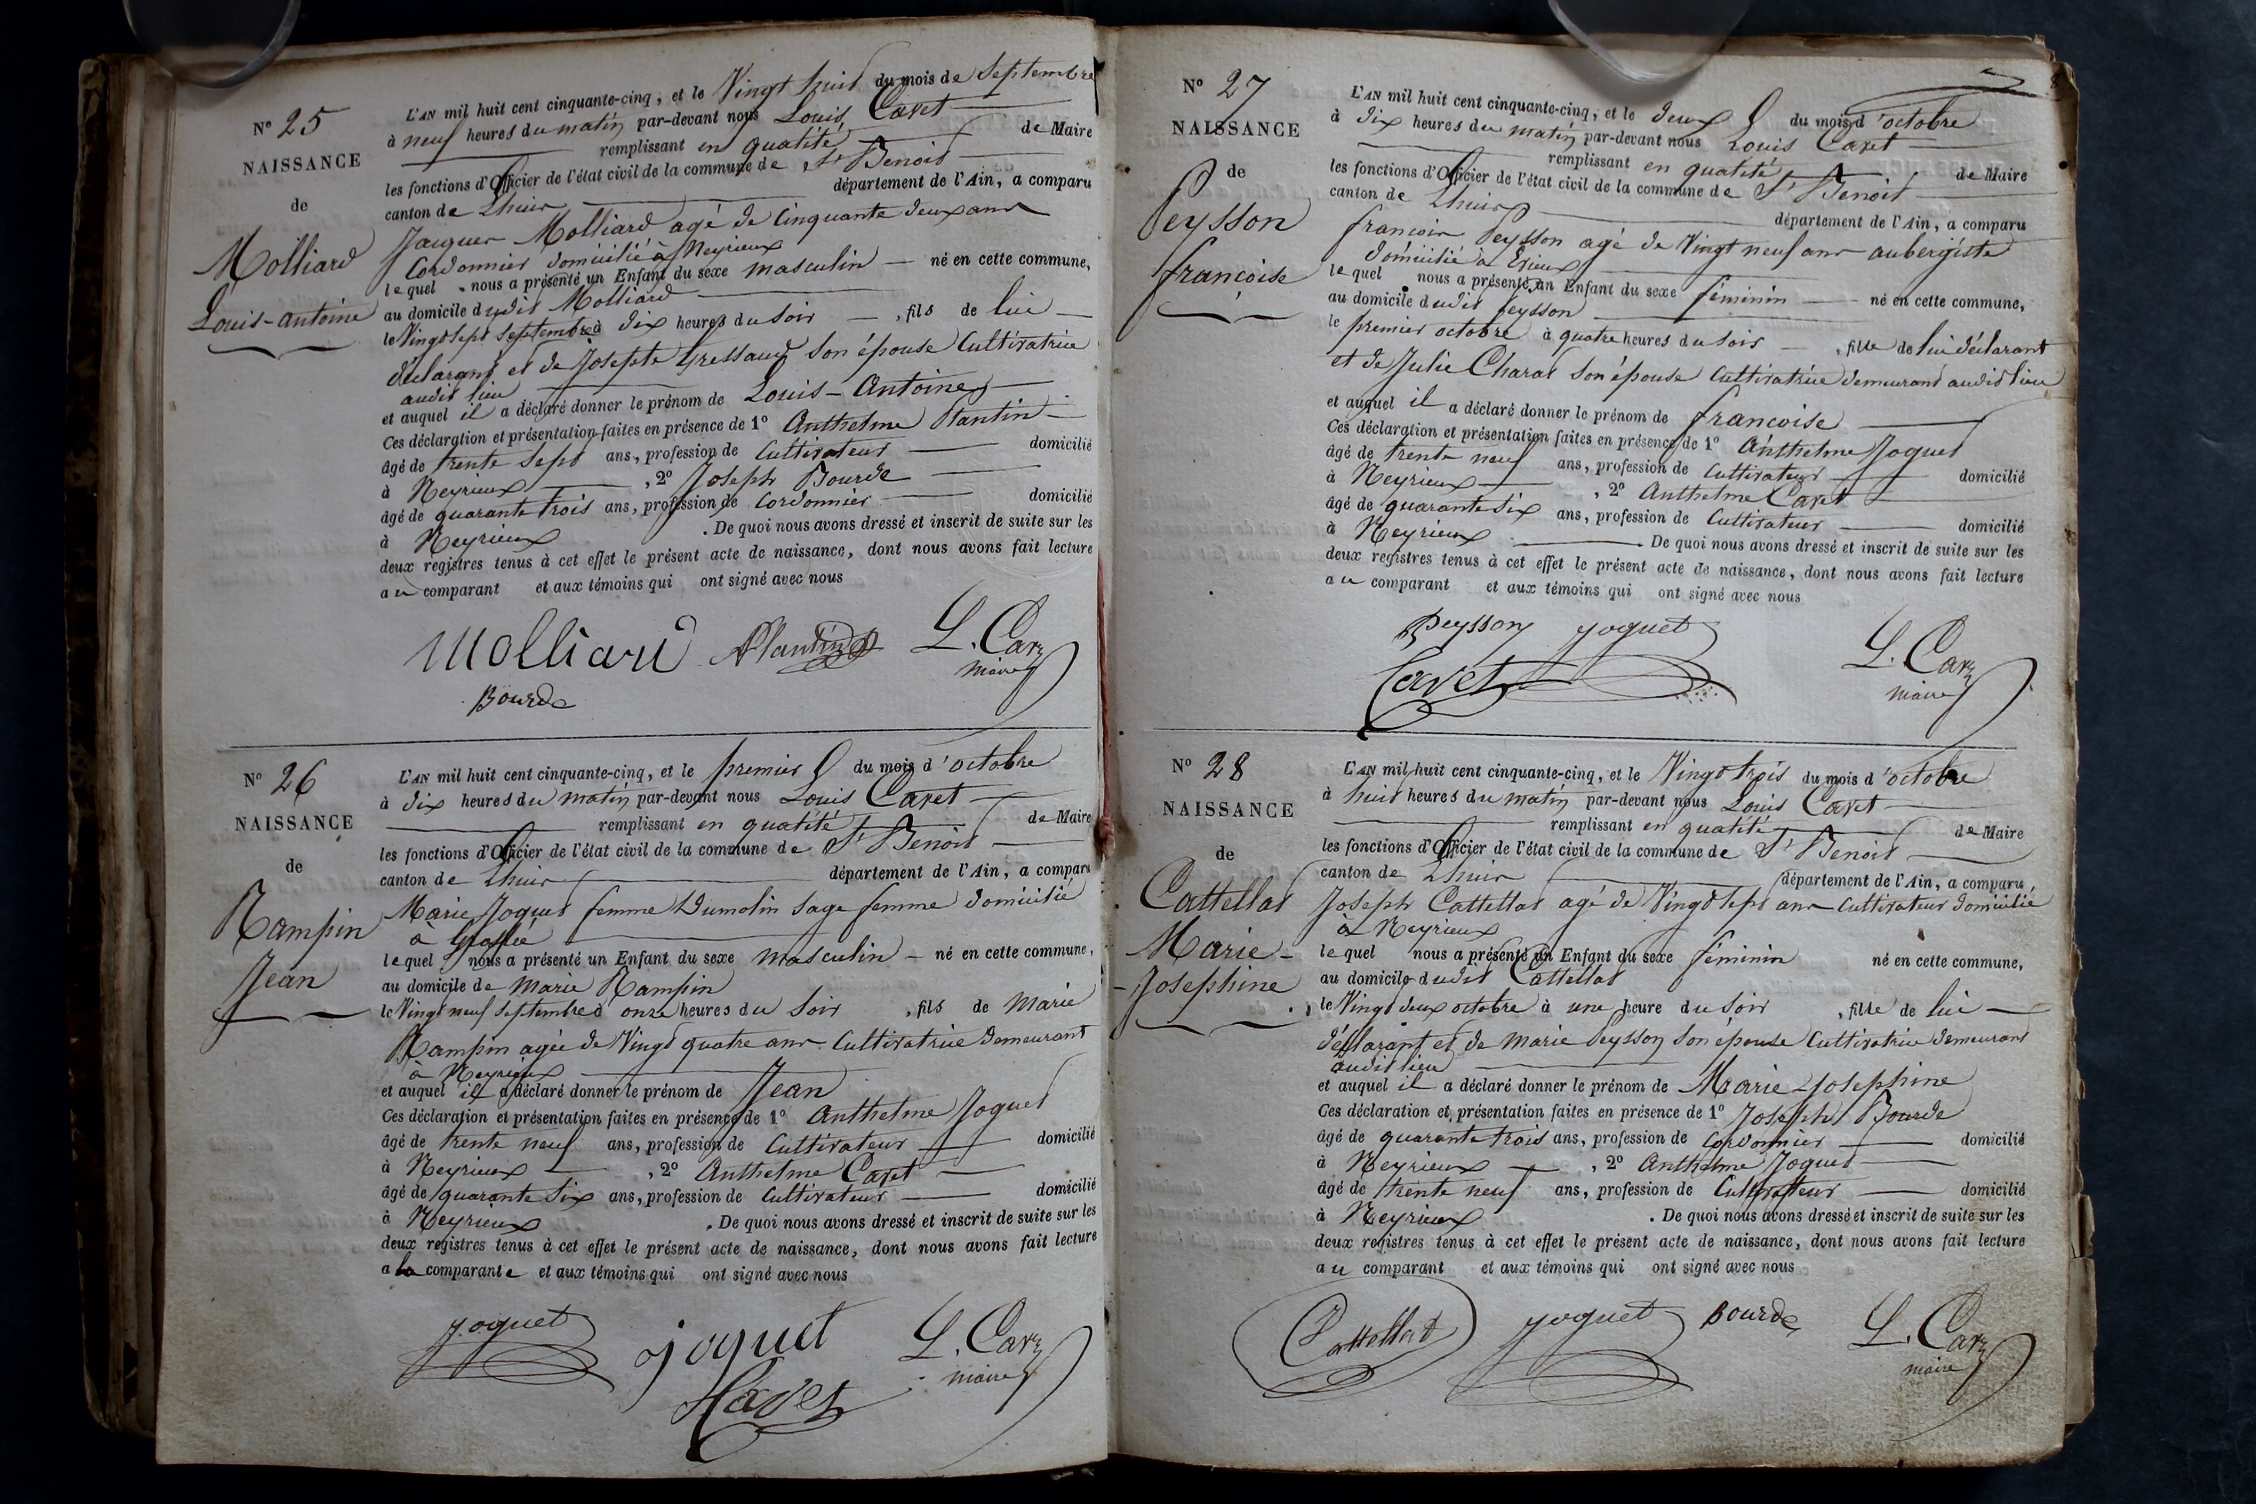 N° 25
NAISSANCE
de
Molliard
Louis-antoine
L'AN mil huit cent cinquante-cinq, et le Vingt huit du mois de Septembre
à neuf heures du matin par-devant nous Louis Cavet
remplissant en qualité de Maire
les fonctions d'Officier de l'état civil de la commune de St Benoit
canton de Lhuis département de l'Ain, a comparu
Jacques Molliard agé de Cinquante deux ans
Cordonnier domicilié à Neyrieux
lequel nous a présenté un Enfant du sexe masculin né en cette commune,
au domicile dudit Molliard
le Vingt sept septembre à dix heures du Soir, fils de lui
déclarant et de Josephte Gressaud Son épouse Cultivatrice
audit lieu
et auquel il a déclaré donner le prénom de Louis-Antoine
Ces déclaration et présentation faites en présence de 1° Anthelme Plantin
âgé de trente sept ans, profession de Cultivateur domicilié
à Neyrieux, 2° Joseph Bourde
âgé de quarante trois ans, profession de Cordonnier domicilié
à Neyrieux. De quoi nous avons dressé et inscrit de suite sur les
deux registres tenus à cet effet le présent acte de naissance, dont nous avons fait lecture
au comparant et aux témoins qui ont signé avec nous
Molliard APlantin L. Cavet
maire
Bourde
N° 26
NAISSANCE
de
Rampin
Jean
L'AN mil huit cent cinquante-cinq, et le premier du mois d'octobre
à dix heures du matin par-devant nous Louis Cavet
remplissant en qualité de Maire
les fonctions d'Officier de l'état civil de la commune de St Benoit
canton de Lhuis département de l'Ain, a comparu
Marie Joguet femme Dumolin Sage femme domicilié
à Groslée
lequel nous a présenté un Enfant du sexe masculin né en cette commune,
au domicile de Marie Rampin
le Vingt neuf Septembre à onze heures du Soir, fils de Marie
Rampin agée de Vingt quatre ans Cultivatrice demeurant
à Neyrieux
et auquel il a déclaré donner le prénom de Jean
Ces déclaration et présentation faites en présence de 1° Anthelme Joguet
âgé de trente neuf ans, profession de Cultivateur domicilié
à Neyrieux, 2° Anthelme Cavet
âgé de quarante Six ans, profession de Cultivateur domicilié
à Neyrieux. De quoi nous avons dressé et inscrit de suite sur les
deux registres tenus à cet effet le présent acte de naissance, dont nous avons fait lecture
a la comparante et aux témoins qui ont signé avec nous
Joguet joguet L. Cavet
maire
Cavet
N° 27
NAISSANCE
de
Peysson
francoise
L'AN mil huit cent cinquante-cinq, et le deux du mois d'octobre
à dix heures du matin par-devant nous Louis Cavet
remplissant en qualité de Maire
les fonctions d'Officier de l'état civil de la commune de St Benoit
canton de Lhuis département de l'Ain, a comparu
francois Peysson agé de Vingt neuf ans aubergiste
domicilié a Evieux
lequel nous a présenté un Enfant du sexe féminin né en cette commune,
au domicile dudit Peysson
le premier octobre à quatre heures du Soir, fille de lui déclarant
et de Julie Charat Son épouse Cultivatrice demeurant audit lieu
et auquel il a déclaré donner le prénom de francoise
Ces déclaration et présentation faites en présence de 1° Anthelme Joguet
âgé de trente neuf ans, profession de Cultivateur domicilié
à Neyrieux, 2° Anthelme Cavet
âgé de quarante Six ans, profession de Cultivateur domicilié
à Neyrieux. De quoi nous avons dressé et inscrit de suite sur les
deux registres tenus à cet effet le présent acte de naissance, dont nous avons fait lecture
au comparant et aux témoins qui ont signé avec nous
Peysson Joguet L. Cavet
Cavet maire
N° 28
NAISSANCE
de
Cattellat
Marie-
-Josephine
L'AN mil huit cent cinquante-cinq, et le Vingt trois du mois d'octobre
à huit heures du matin par-devant nous Louis Cavet
remplissant en qualité de Maire
les fonctions d'Officier de l'état civil de la commune de St Benoit
canton de Lhuis département de l'Ain, a comparu,
Joseph Cattellat agé de Vingt Sept ans Cultivateur domicilié
à Neyrieux
lequel nous a présenté un Enfant du sexe féminin né en cette commune,
au domicile dudit Cattellat
le Vingt deux octobre à une heure du Soir, fille de lui
déclarant et de Marie Peysson Son épouse Cultivatrice demeurant
audit lieu
et auquel il a déclaré donner le prénom de Marie Josephine
Ces déclaration et présentation faites en présence de 1° Joseph Bourde
âgé de quarante trois ans, profession de Cordonnier domicilié
à Neyrieux, 2° Anthelme Joguet
âgé de trente neuf ans, profession de Cultivateur domicilié
à Neyrieux. De quoi nous avons dressé et inscrit de suite sur les
deux registres tenus à cet effet le présent acte de naissance, dont nous avons fait lecture
au comparant et aux témoins qui ont signé avec nous
Cattellat Joguet Bourde L. Cavet
maire